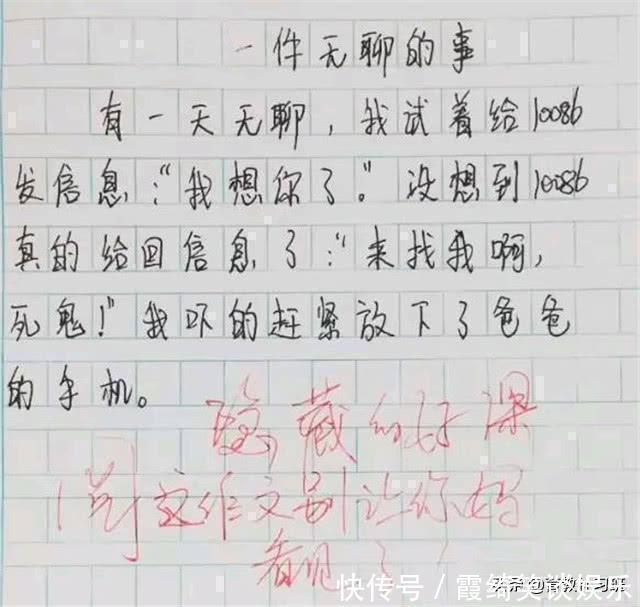 一件无聊的事
有一天无聊，我试着给10086
发信息："我想你了。"没想到10086
真的给回信息了："来找我啊，
死鬼！"我吓的赶紧放下了爸爸
的手机。
隐藏的好深
这作文别让你妈
看见了！
快传号 / 霞绮笑谈娱乐